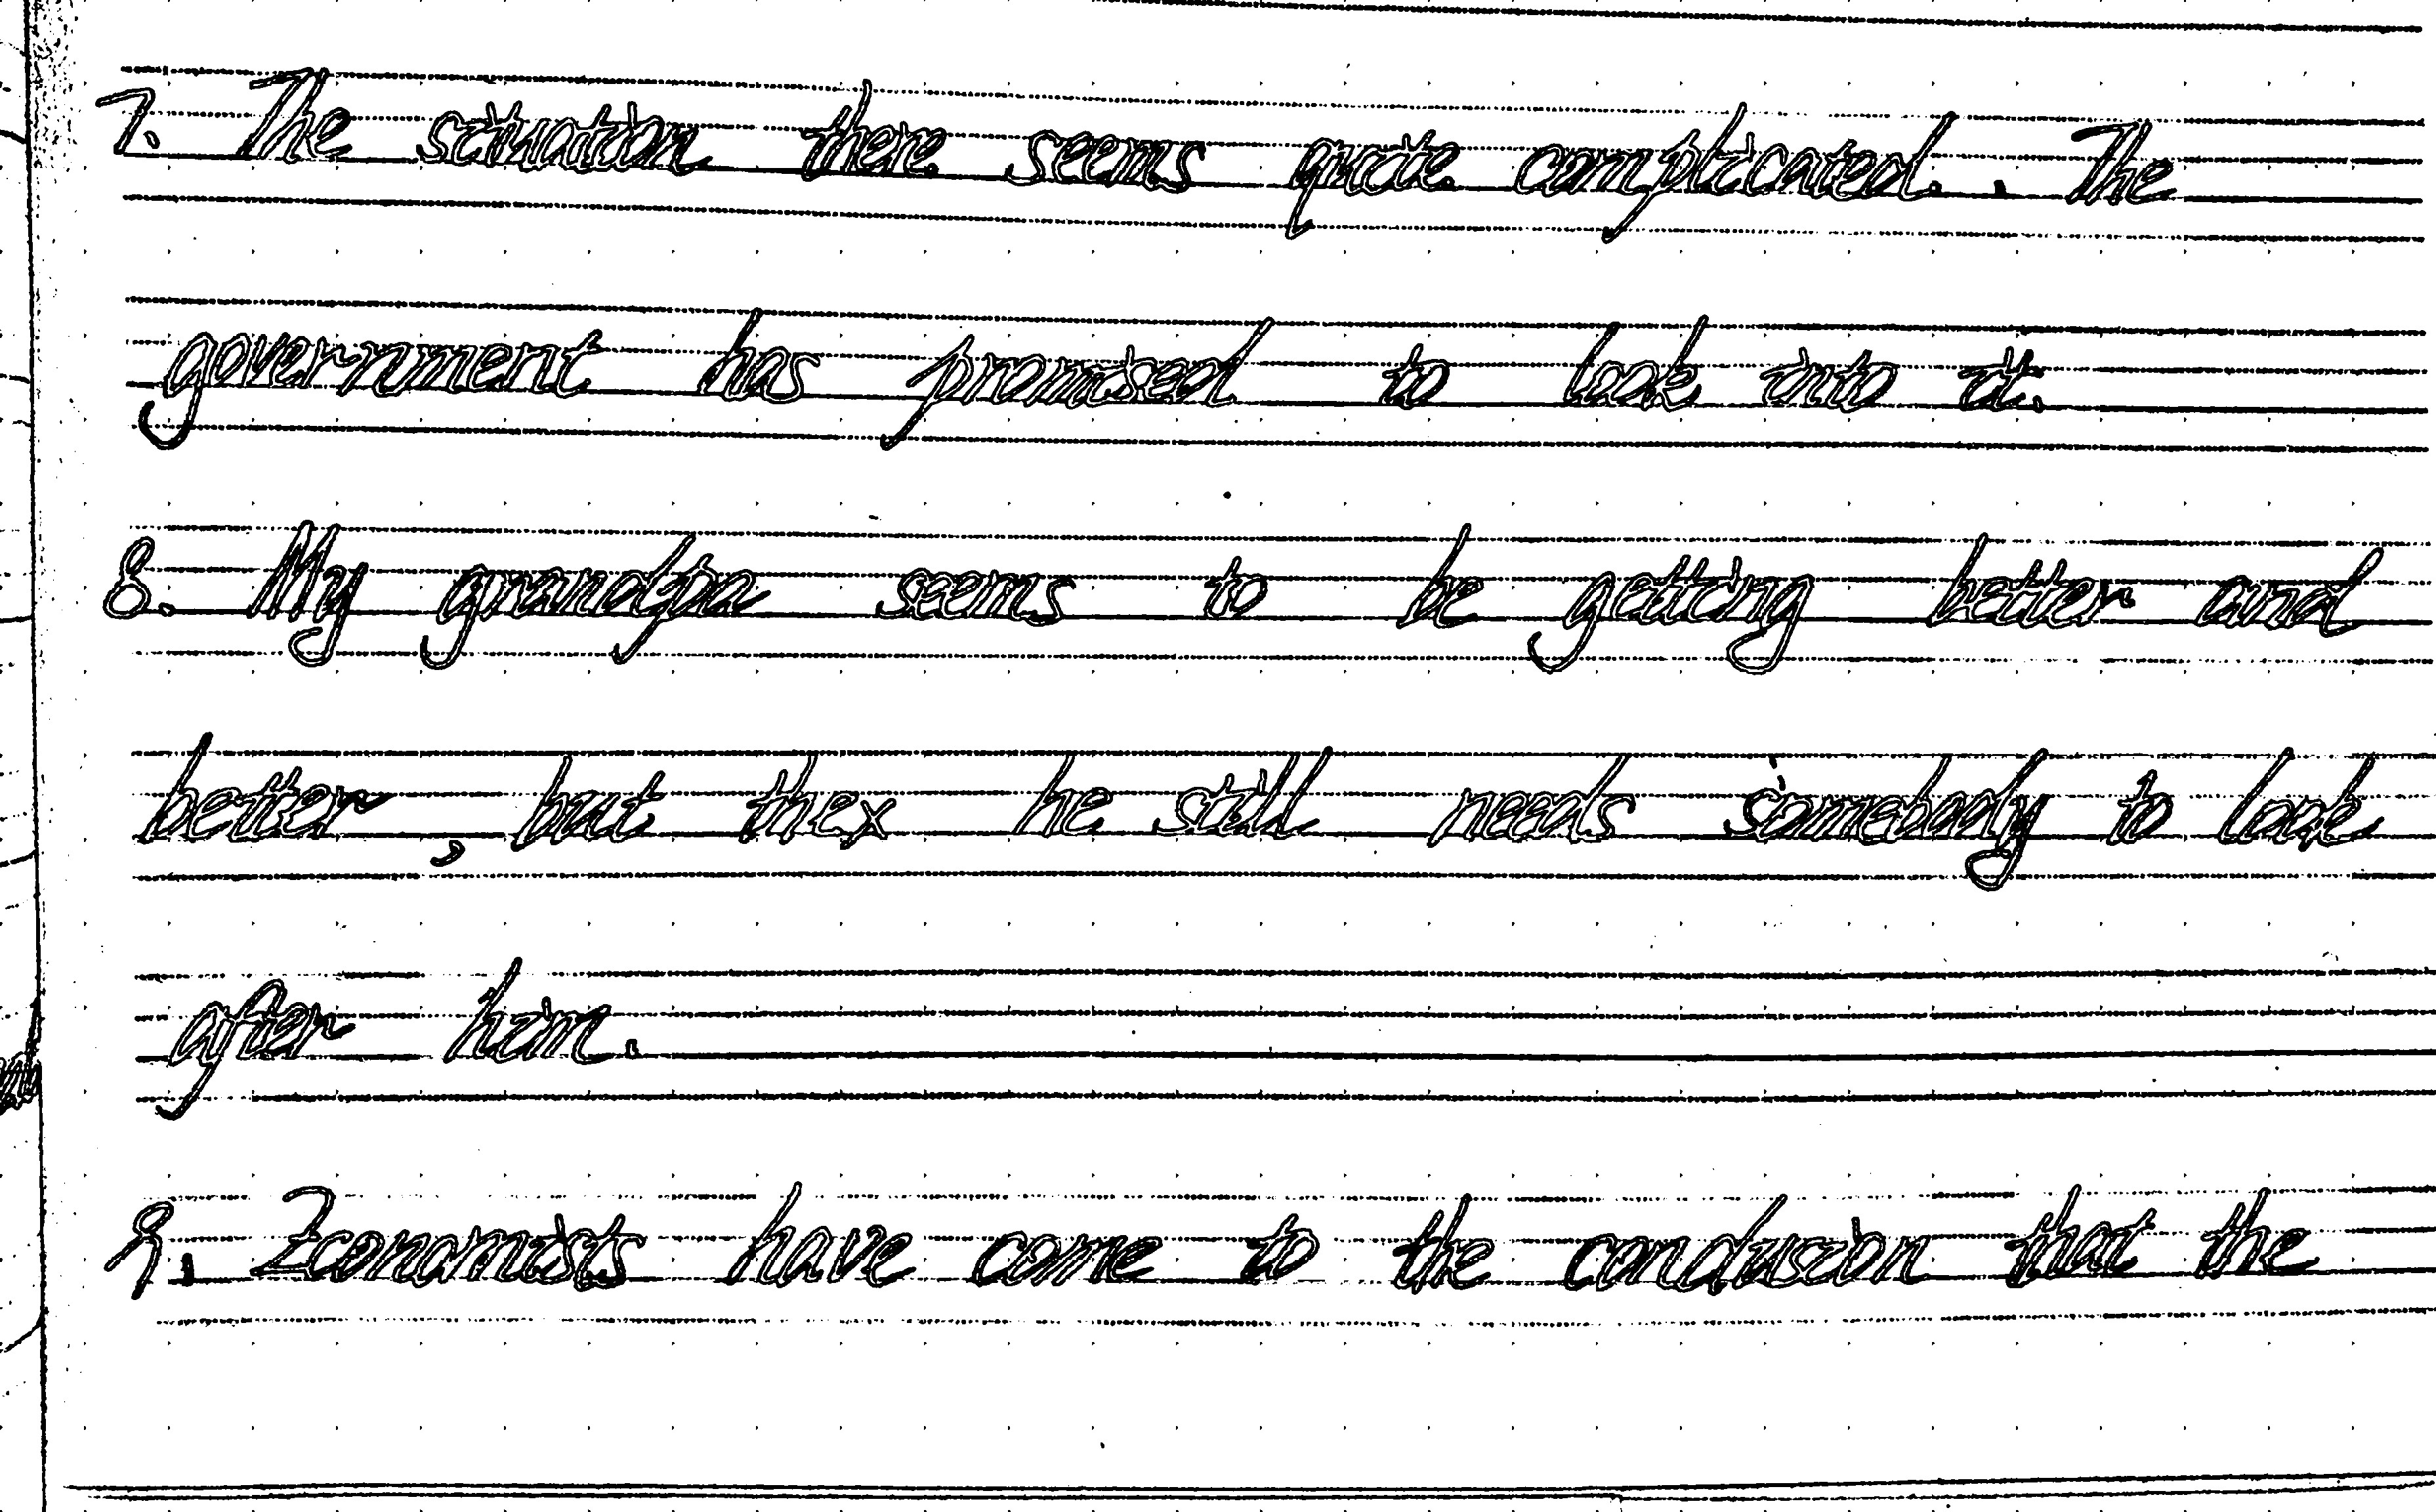 7. The situation there seems quite complicated. . The
government has promised to look into it.
8. My grandpa seems to be getting better and
better , but thex he still needs somebody to look
after him.
9. Economists have come to the conclusion that the